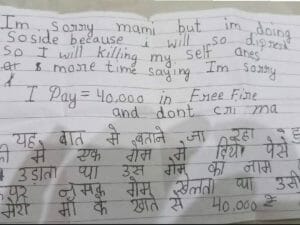 Im sorry mami but im doing
soside because i will so dipresd
so I will killing my self ones
more time saying Im sorry
I Pay = 40,000 in Free Fire
and dont cri ma
यह बात मे बताने जा रहा
की मे एक गेम मे दिया पैसे
उड़ाता था उस गेम का नाम
पर गेम खेलता था उसी
मेरी माँ के खाते से 40,000